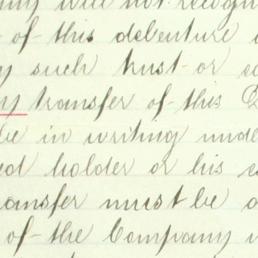 will not recogn
of this debenture
such trust or
transfer of this
be in writing unde
holder or his
transfer must be
of the Company